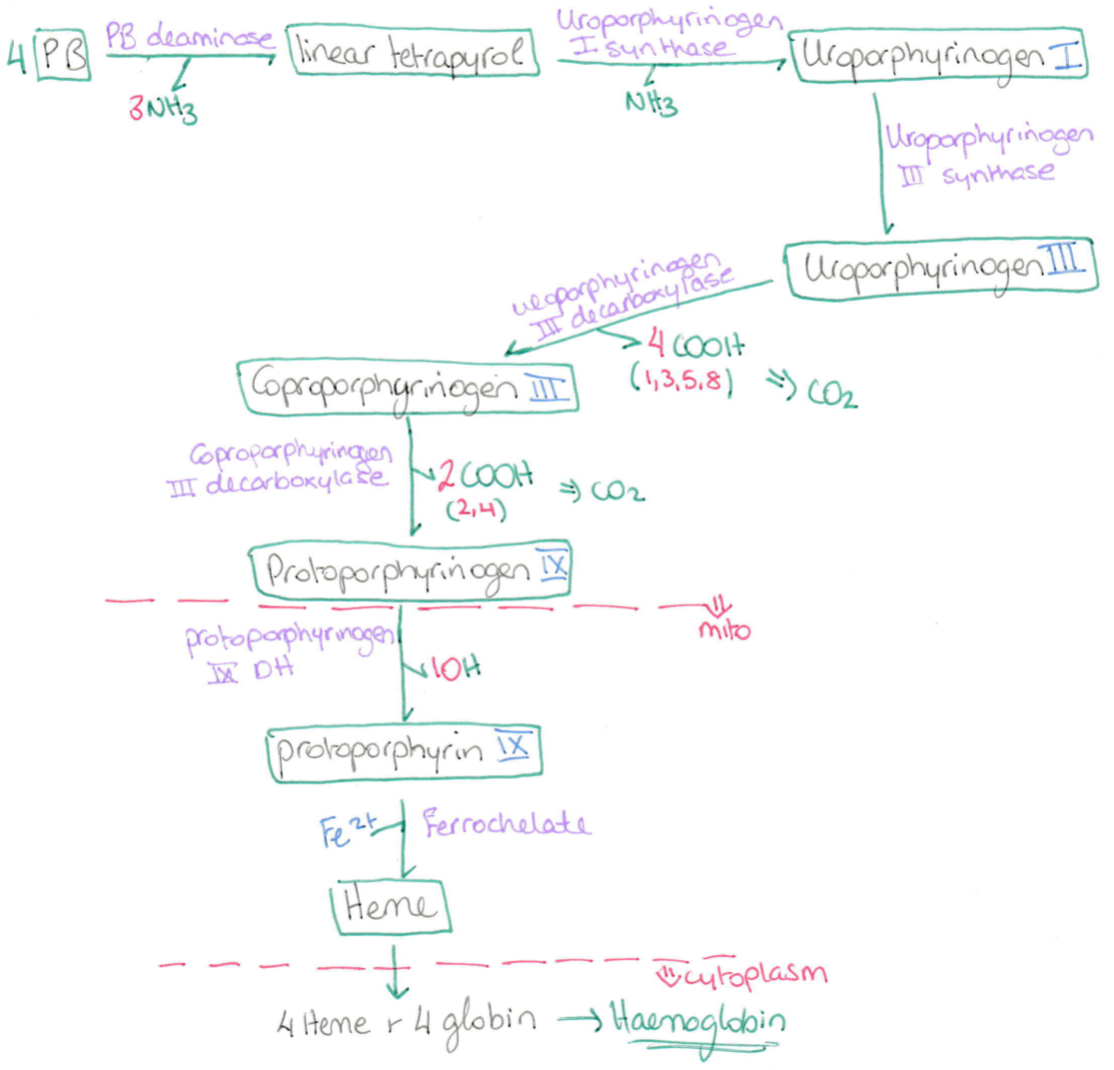 4 PB
PB deaminase
3NH3
linear tetrapyrol
Uroporphyrinogen
I synthase
NH3
Uroporphyrinogen I
Uroporphyrinogen
III synthase
Uroporphyrinogen III
ueoporphyrinogen
III decarboxylase
4 COOH
(1,3,5,8) ⇒ CO2
Coproporphyrinogen III
Coproporphyrinogen
III decarboxylase
2COOH ⇒ CO2
(2,4)
Protoporphyrinogen IX
⇓
mito
protoporphyrinogen
IX DH
10H
protoporphyrin IX
Fe2+
Ferrochelate
Heme
⇓ cytoplasm
4 Heme + 4 globin → Haemoglobin